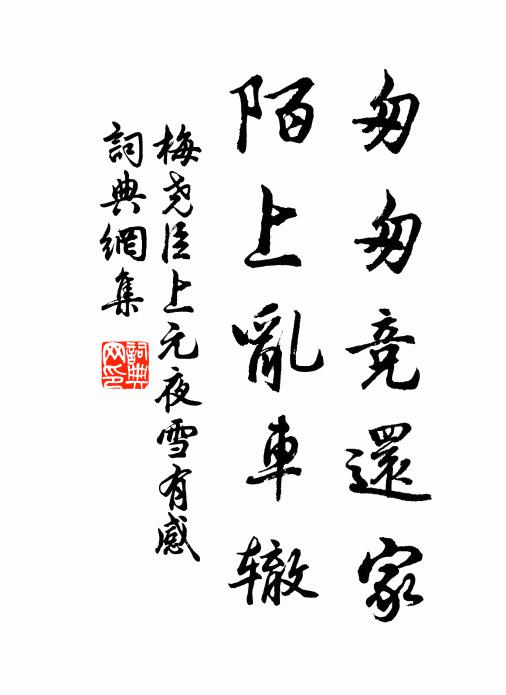 匆匆竞還家
陌上亂車辙
梅尧臣上元夜雪有感
詞典網集
詞典網印